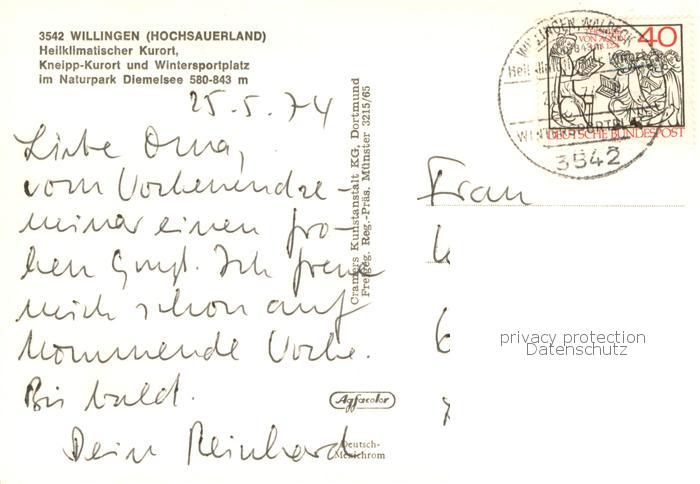 3542 WILLINGEN (HOCHSAUERLAND)
Heilklimatischer Kurort,
Kneipp-Kurort und Wintersportplatz
im Naturpark Diemelsee 580-843 m
25.5.74
Liebe Oma,
vom Wochenendse-
minar einen fro-
hen Gruß. Ich freue
mich schon auf
kommende Woche.
Bis bald.
Dein Reinhard
Cramers Kunstanstalt KG, Dortmund
Freigeg. Reg.-Präs. Münster 3215/65
Agfacolor
Deutsch-
Mexichrom
40
DEUTSCHE BUNDESPOST
WILLINGEN, WALDECK
WINTERSPORTPL
3542
Frau
privacy protection
Datenschutz